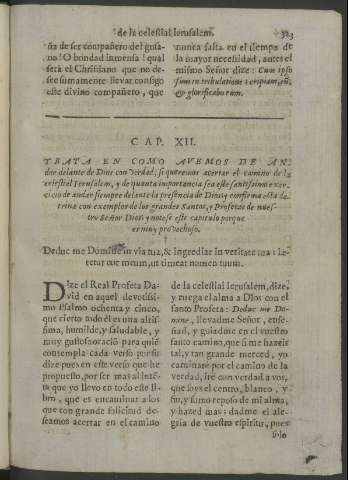 de la celestial Ierusalem. 323
ña de ser compañero del gusa-
no! O bondad inmensa! qual
será el Christiano que no de-
see sumamente llevar consigo
este divino compañero, que
nunca falta en el tiempo de
la mayor necesidad, antes el
mismo Señor dize: Cum ipso
sum in tribulatione: eripiam eũ,
& glorificabo eum.
CAP. XII.
TRATA EN COMO AVEMOS DE AN-
dar delante de Dios con verdad, si queremos acertar el camino de la
celestial Jerusalèn, y de quanta importancia sea este santissimo exer-
cicio de andar siempre delante la presencia de Dios, y confirma esta do-
trina con exemplos de los grandes Santos, y Profetas de nues-
tro Señor Dios: y notese este capitulo porque
es muy provechoso.
Deduc me Domine in via tua, & ingrediar in veritate tua: læ-
tetur cor meum, ut timeat nomen tuum.
Dize el Real Profeta Da-
vid en aquel devotissi-
mo Psalmo ochenta y cinco,
que cierto todo èl es una altis-
sima, humilde, y saludable, y
muy gustosa oraciõ para quiẽ
contempla cada verso por sì:
dize pues en este verso que he
propuesto, por ser mas al intẽ-
ta que yo llevo en todo este li-
bro, que es encaminar a los
que con grande solicitud de-
seamos acertar en el camino
de la celestial Ierusalem, dize,
y ruega el alma a Dios con el
santo Profeta: Deduc me Do-
mine, llevadme Señor, ense-
ñad, y guiadme en el vuestro
santo camino, que si me hazeis
tal, y tan grande merced, yo
caminarè por el camino de la
verdad, irè con verdad a vos,
que sois el centro, blanco, y
fin, y sumo reposo de mi alma,
y hazed mas: dadme el ale-
gria de vuestro espiritu, pues
solo